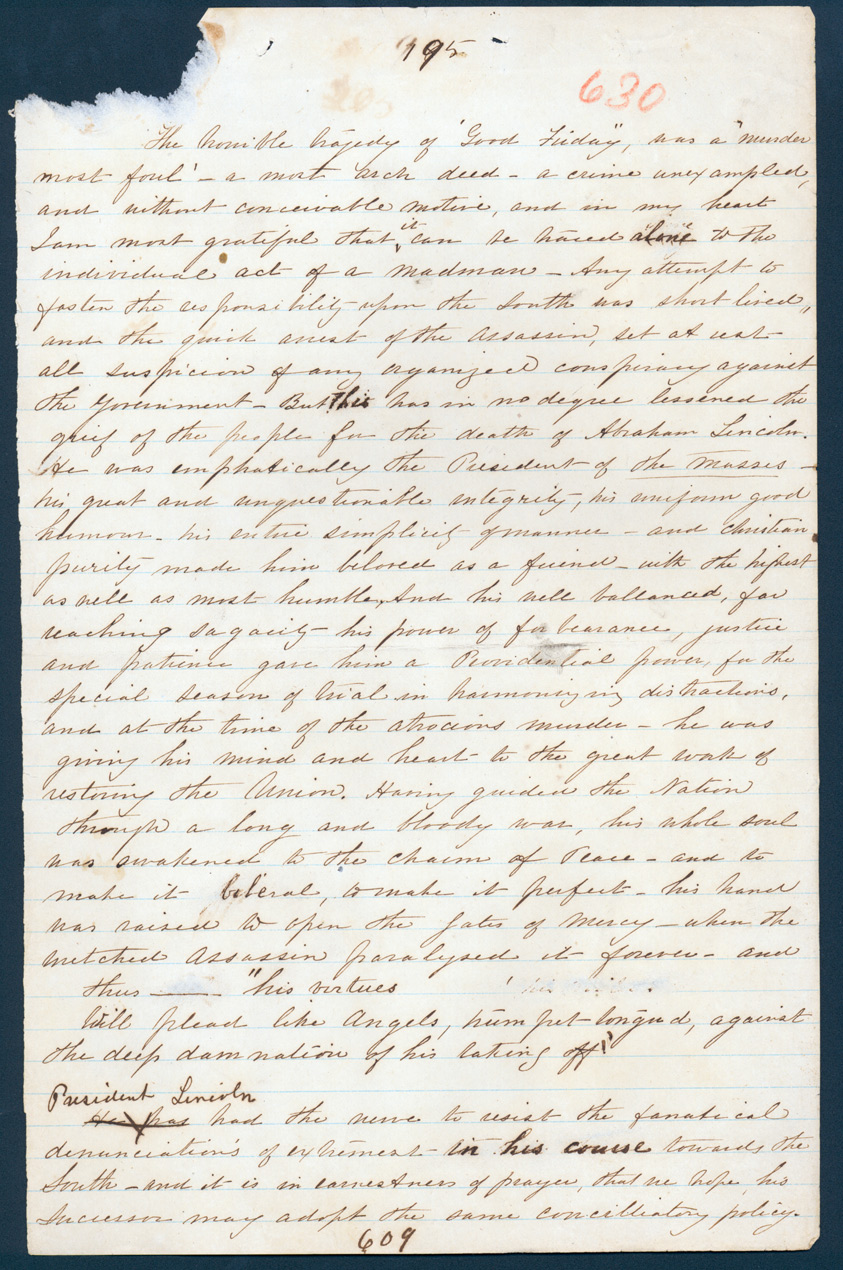 195
630
The horrible tragedy of 'Good Friday", was a "murder
most foul' – a most arch deed – a crime unexampled,
and without conceivable motive, and in my heart
I am most grateful that it can be traced alone to the
individual act of a madman – Any attempt to
fasten the responsibility upon the South was short lived,
and the quick arrest of the Assassin, set at rest
all suspicion of any organized conspiracy against
the Government – But this has in no degree lessened the
grief of the people for the death of Abraham Lincoln.
He was emphatically the President of the Masses –
his great and unquestionable integrity, his uniform good
humour – his entire simplicity of manner – and christian
purity made him beloved as a friend – with the highest
as well as most humble, And his well ballanced, far
reaching sagacity – his power of forbearance, justice
and patience gave him a Providential power, for the
special season of trial in harmonizing distractions,
and at the time of the atrocious murder – he was
giving his mind and heart to the great work of
restoring the Union. Having guided the Nation
through a long and bloody war, his whole soul
was awakened to the charm of Peace – and to
make it liberal, to make it perfect – his hand
was raised to open the gates of Mercy – when the
wretched Assassin paralysed it forever – and
thus —— "his virtues
Will plead like Angels, trumpet-tongued, against
the deep damnation of his taking off!"
President Lincoln
He has had the nerve to resist the fanatical
denunciations of extremest in his course towards the
South – and it is in earnestness of prayer, that we hope, his
Successor may adopt the same concilliatory policy.
609